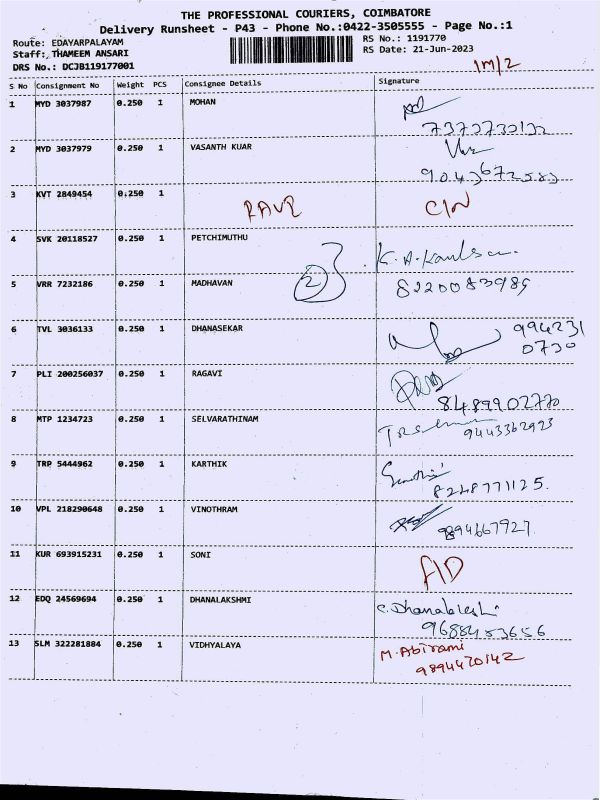 THE PROFESSIONAL COURIERS, COIMBATORE
Delivery Runsheet - P43 - Phone No.:0422-3505555 - Page No.:1
Route: EDAYARPALAYAM RS No.: 1191770
Staff: THAMEEM ANSARI RS Date: 21-Jun-2023
DRS No.: DCJB119177001
1M/2
S No Consignment No Weight PCS Consignee Details Signature
1 MYD 3037987 0.250 1 MOHAN
2 MYD 3037979 0.250 1 VASANTH KUAR
3 KVT 2849454 0.250 1
RAVI C/N
4 SVK 20118527 0.250 1 PETCHIMUTHU
5 VRR 7232186 0.250 1 MADHAVAN 2 8220083989
6 TVL 3036133 0.250 1 DHANASEKAR 994231
0730
7 PLI 200256037 0.250 1 RAGAVI
8489902770
8 MTP 1234723 0.250 1 SELVARATHINAM 9443362923
9 TRP 5444962 0.250 1 KARTHIK
8248771125.
10 VPL 218290648 0.250 1 VINOTHRAM
9894667927
11 KUR 693915231 0.250 1 SONI
12 EDQ 24569694 0.250 1 DHANALAKSHMI
13 SLM 322281884 0.250 1 VIDHYALAYA M. Abirami
9894470142